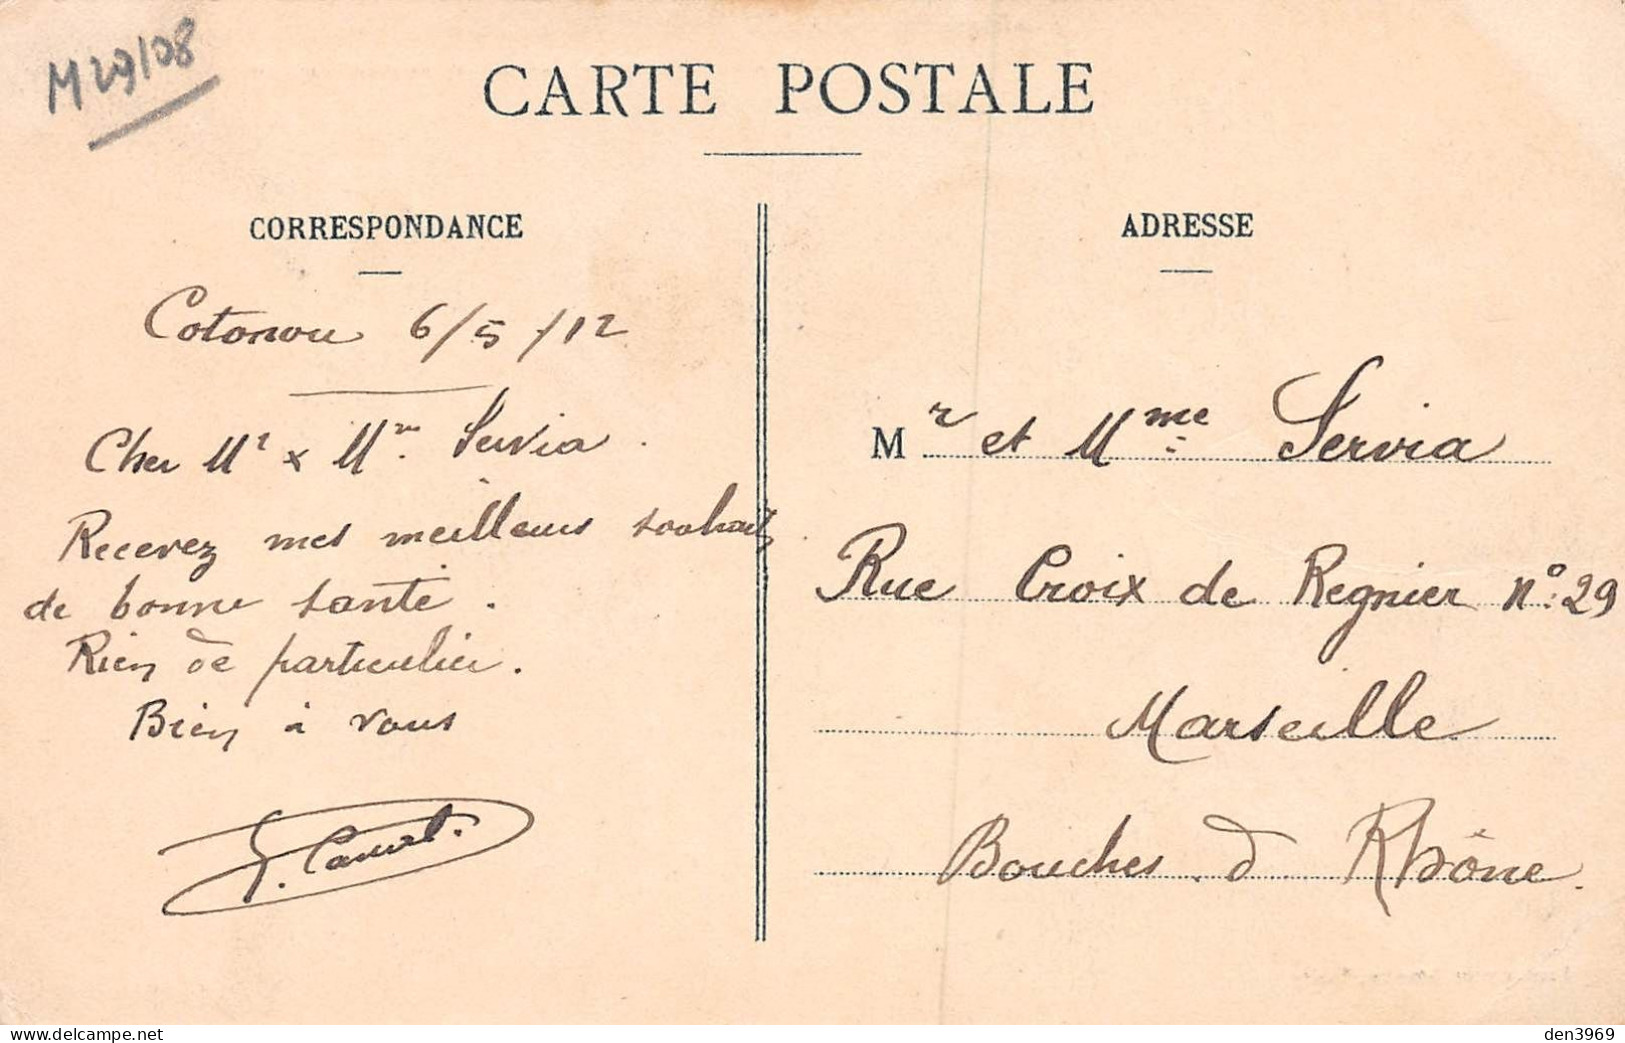 M29/08
CARTE POSTALE
CORRESPONDANCE
Cotonou 6/5/12
Cher Mr x Mme Servia.
Recevez mes meilleurs souhaits
de bonne santé.
Rien de particulier.
Bien à vous
ADRESSE
Mr et Mme Servia
Rue Croix de Regnier n° 29
Marseille
Bouches. d. Rhône.
delcampe.net
den3969